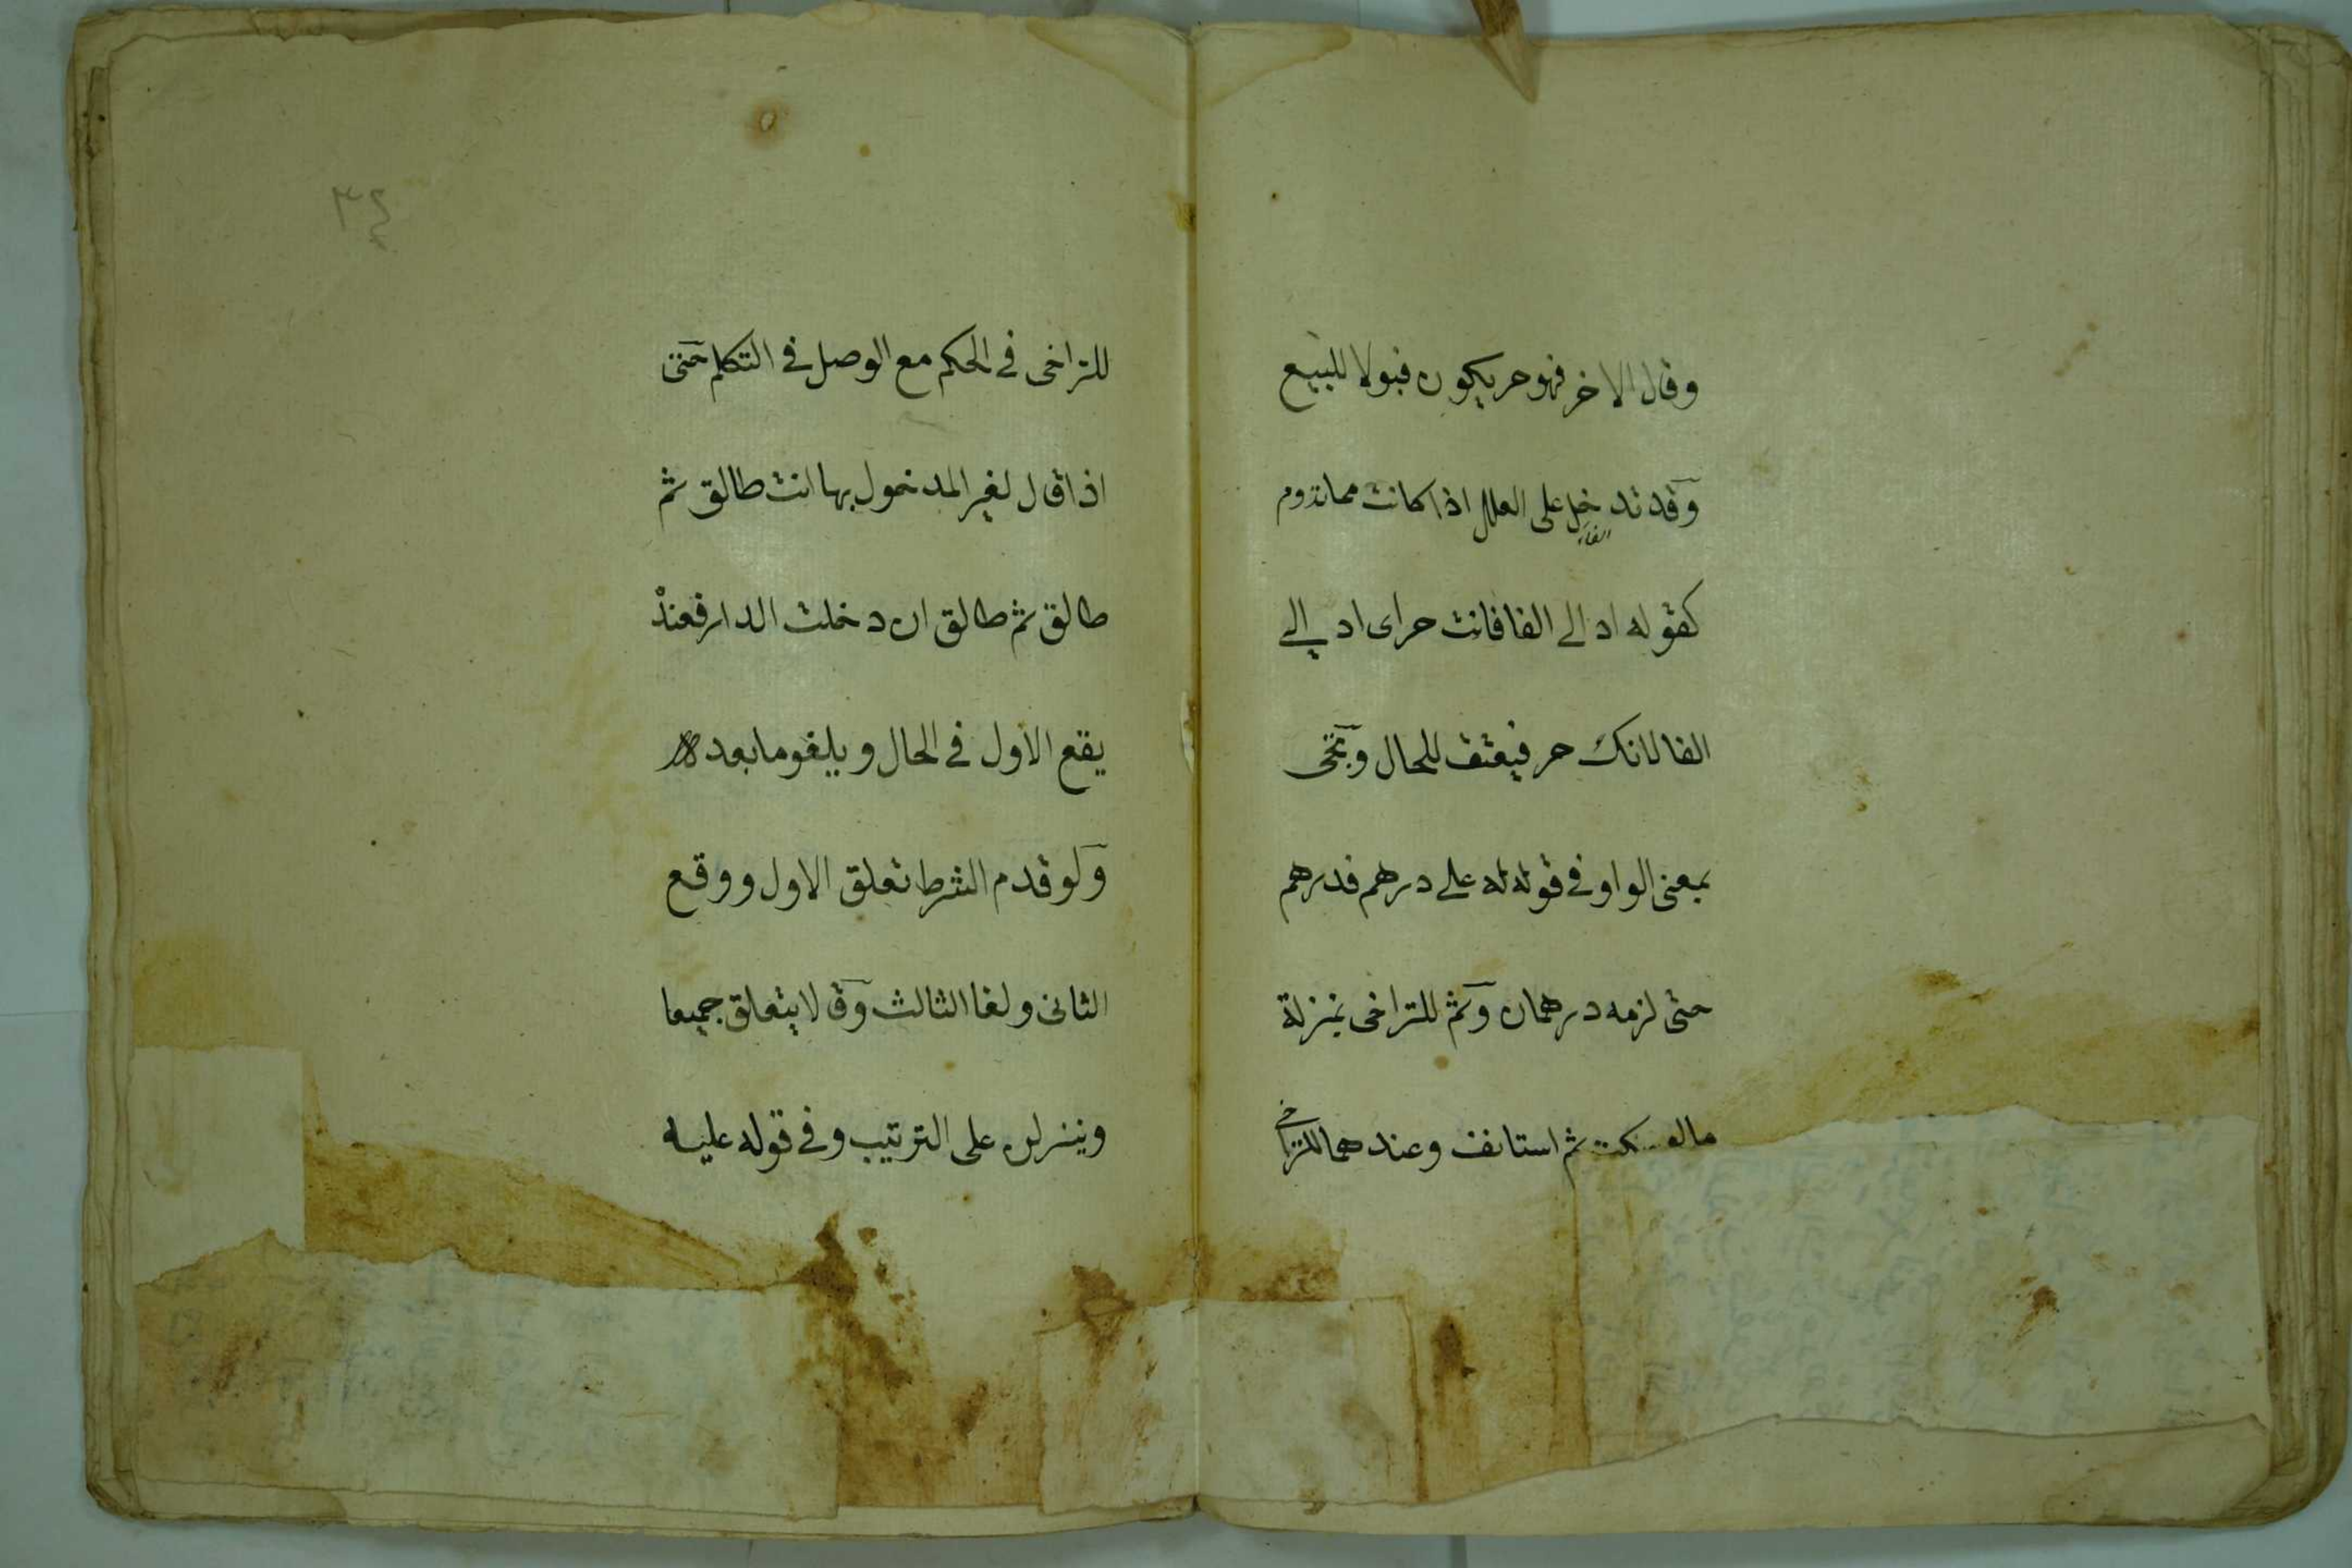 وقال الاخر فهو حر يكون قبولا للبيع
وقد تدخل على العلل اذا كانت مما تدوم
الفاء
كقوله اد الى الفا فانت حر اى اد الى
الفا لانك حر فيعتق للحال وتجئ
بمعنى الواو فى قوله له على درهم فدرهم
حتى لزمه درهمان وثم للتراخى بمنزلة
مالو سكت ثم استانف وعندهما للتراخى
٣٤
للتراخى فى الحكم مع الوصل فى التكلم حتى
اذا قال لغير المدخول بها انت طالق ثم
طالق ثم طالق ان دخلت الدار فعنده
يقع الاول فى الحال ويلغو ما بعده
ولو قدم الشرط تعلق الاول ووقع
الثانى ولغا الثالث وقالا يتعلق جميعا
وينزلن على الترتيب وفى قوله عليه